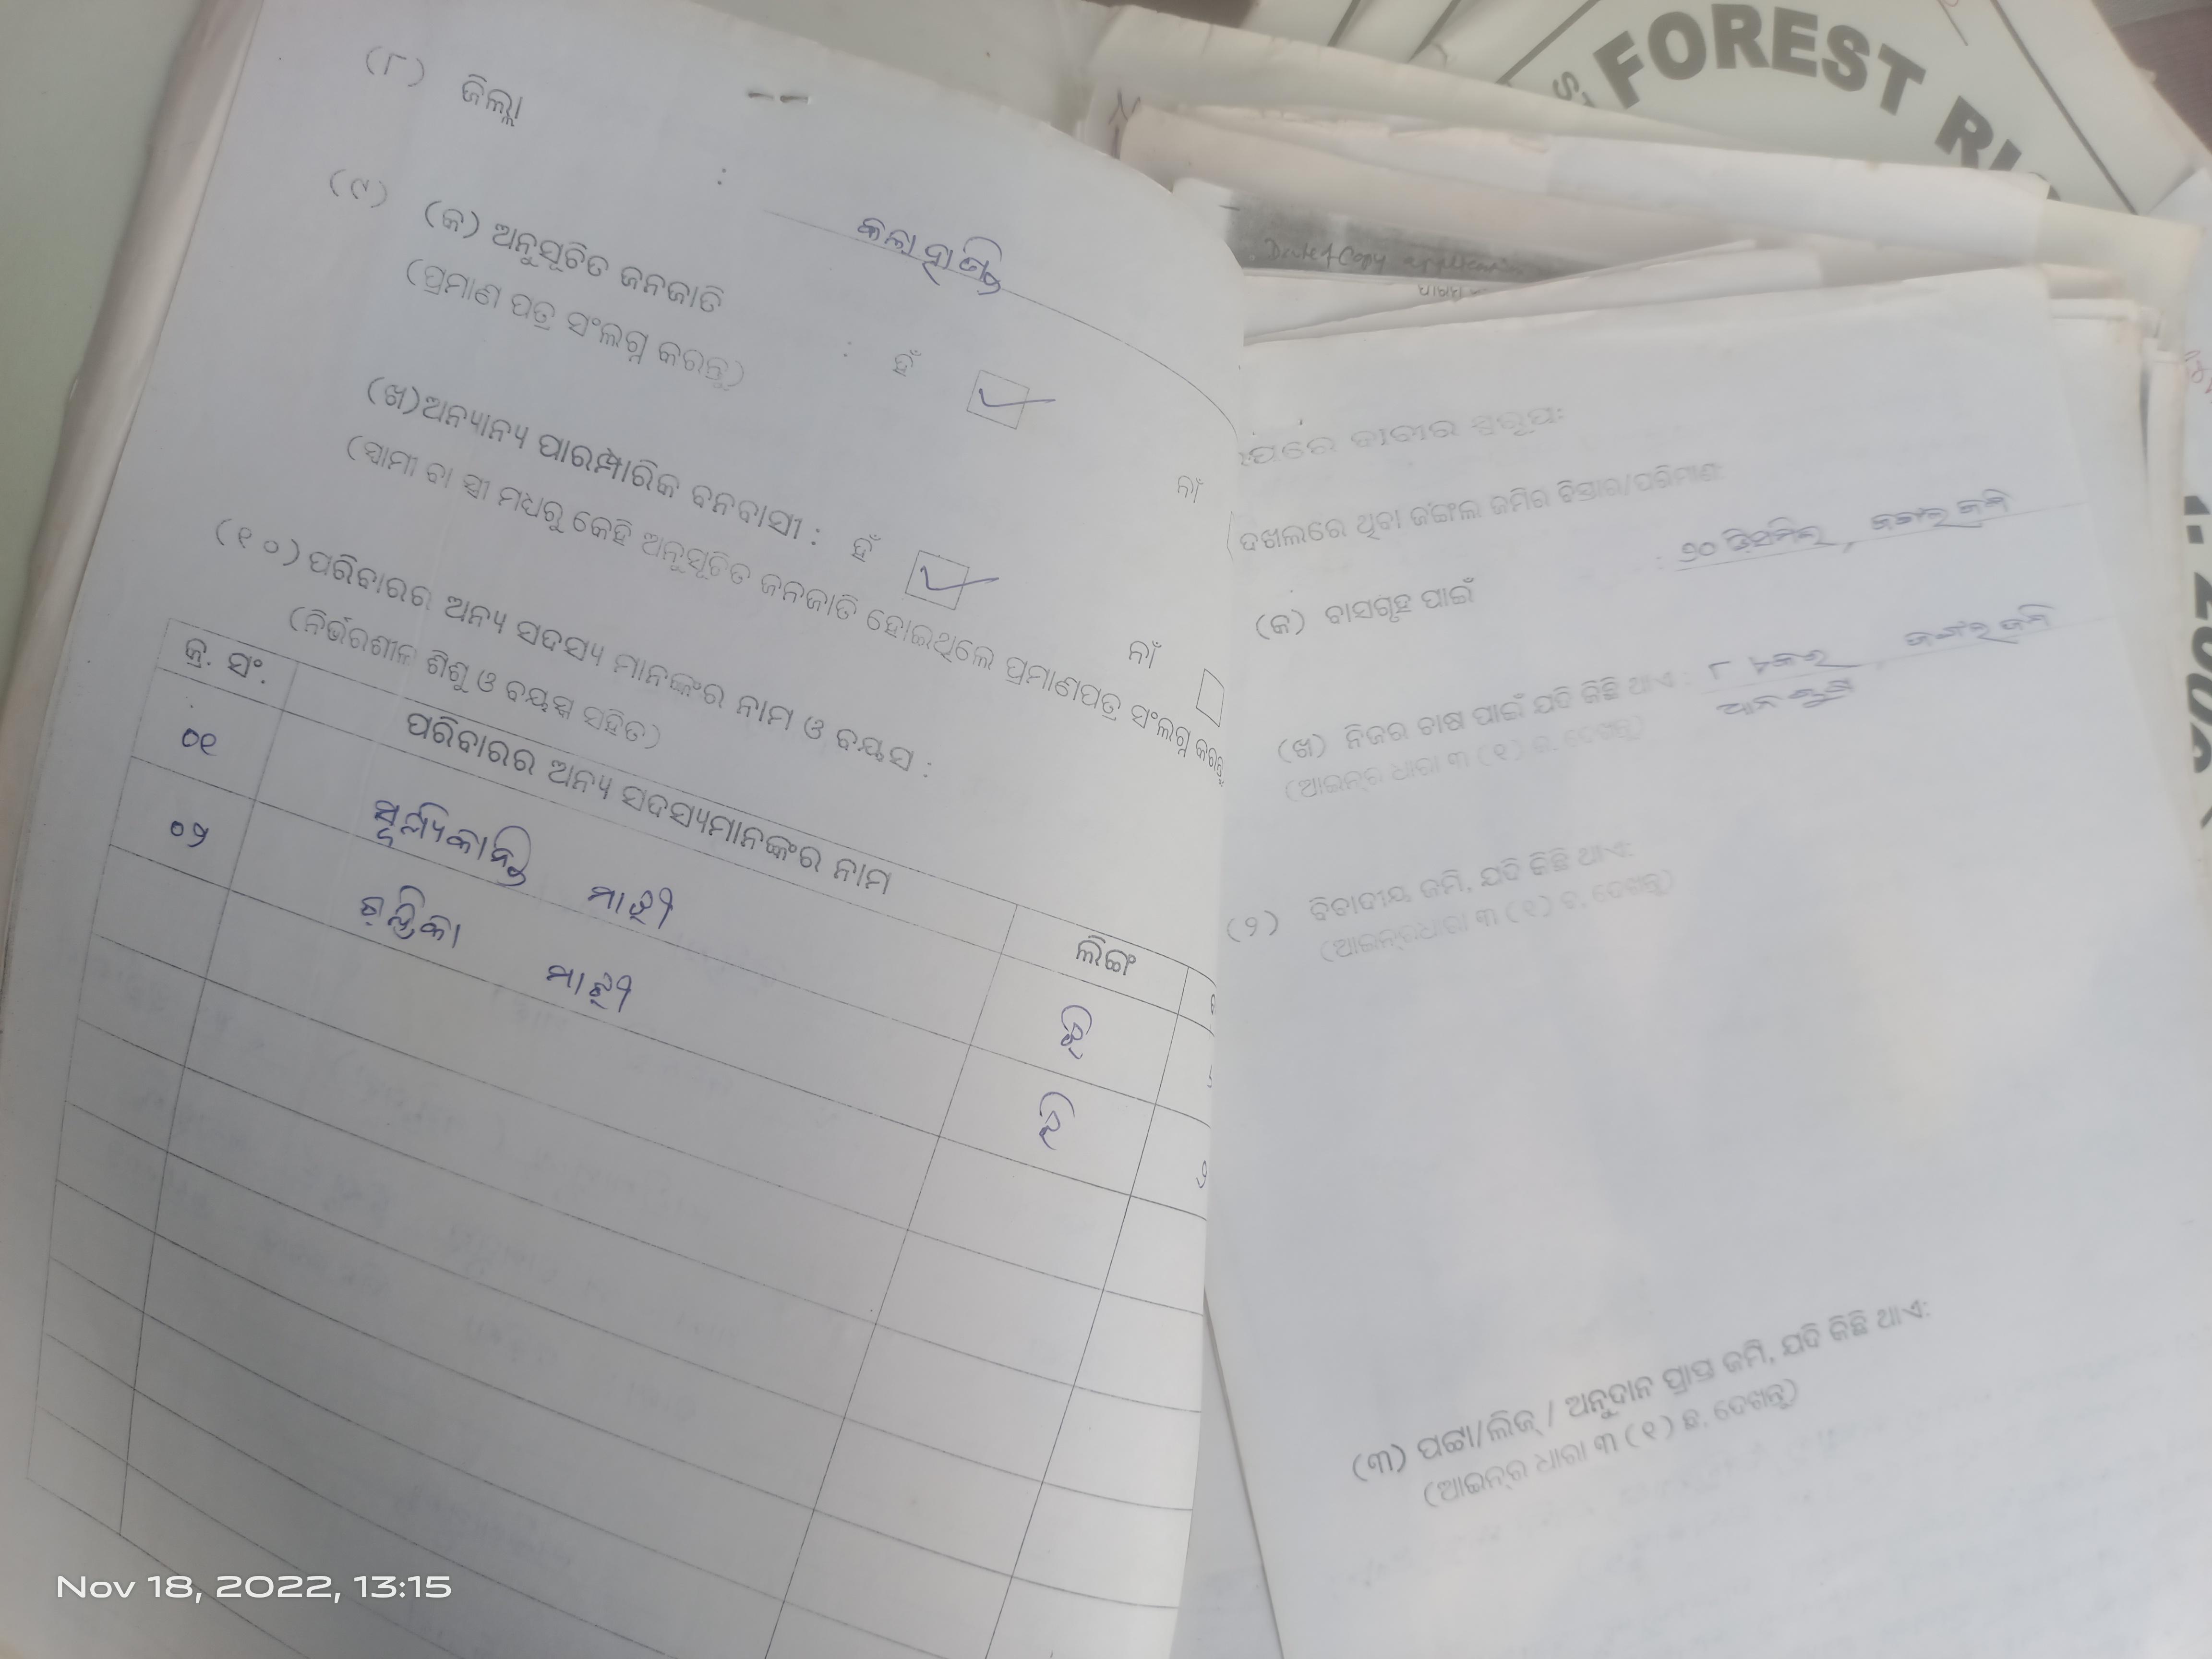 (୮) ଜିଲ୍ଲା : କଳାହାଣ୍ଡି
(୯) (କ) ଅନୁସୂଚିତ ଜନଜାତି : ହଁ ନାଁ
(ପ୍ରମାଣ ପତ୍ର ସଂଲଗ୍ନ କରନ୍ତୁ)
(ଖ) ଅନ୍ୟାନ୍ୟ ପାରମ୍ପାରିକ ବନବାସୀ : ହଁ ନାଁ
(ସ୍ୱାମୀ ବା ସ୍ତ୍ରୀ ମଧ୍ୟରୁ କେହି ଅନୁସୂଚିତ ଜନଜାତି ହୋଇଥିଲେ ପ୍ରମାଣପତ୍ର ସଂଲଗ୍ନ କରନ୍ତୁ
(୧୦) ପରିବାରର ଅନ୍ୟ ସଦସ୍ୟ ମାନଙ୍କର ନାମ ଓ ବୟସ :
(ନିର୍ଭରଶୀଳ ଶିଶୁ ଓ ବୟସ୍କ ସହିତ)
କ୍ର. ସଂ. ପରିବାରର ଅନ୍ୟ ସଦସ୍ୟମାନଙ୍କର ନାମ ଲିଙ୍ଗ
୦୧ ସୂର୍ଯ୍ୟକାନ୍ତି ମାଝୀ
୦୨ ମାଝୀ
FOREST RI
application
ଦଖଲରେ ଥିବା ଜଙ୍ଗଲ ଜମିର ବିସ୍ତାର/ପରିମାଣ:
(କ) ବାସଗୃହ ପାଇଁ : ୨୦ ଡିସମିଲ, ଜଙ୍ଗଲ ଜମି
(ଖ) ନିଜର ଚାଷ ପାଇଁ ଯଦି କିଛି ଥାଏ : ୮ ଜଙ୍ଗଲ ଜମି
(ଆଇନ୍‌ର ଧାରା ୩ (୧) କ. ଦେଖନ୍ତୁ)
(୨) ବିବାଦୀୟ ଜମି, ଯଦି କିଛି ଥାଏ:
(ଆଇନ୍‌ର ଧାରା ୩ (୧) ଚ. ଦେଖନ୍ତୁ)
(୩) ପଟ୍ଟା/ଲିଜ୍ / ଅନୁଦାନ ପ୍ରାପ୍ତ ଜମି, ଯଦି କିଛି ଥାଏ:
(ଆଇନ୍‌ର ଧାରା ୩ (୧) ଛ. ଦେଖନ୍ତୁ)
Nov 18, 2022, 13:15